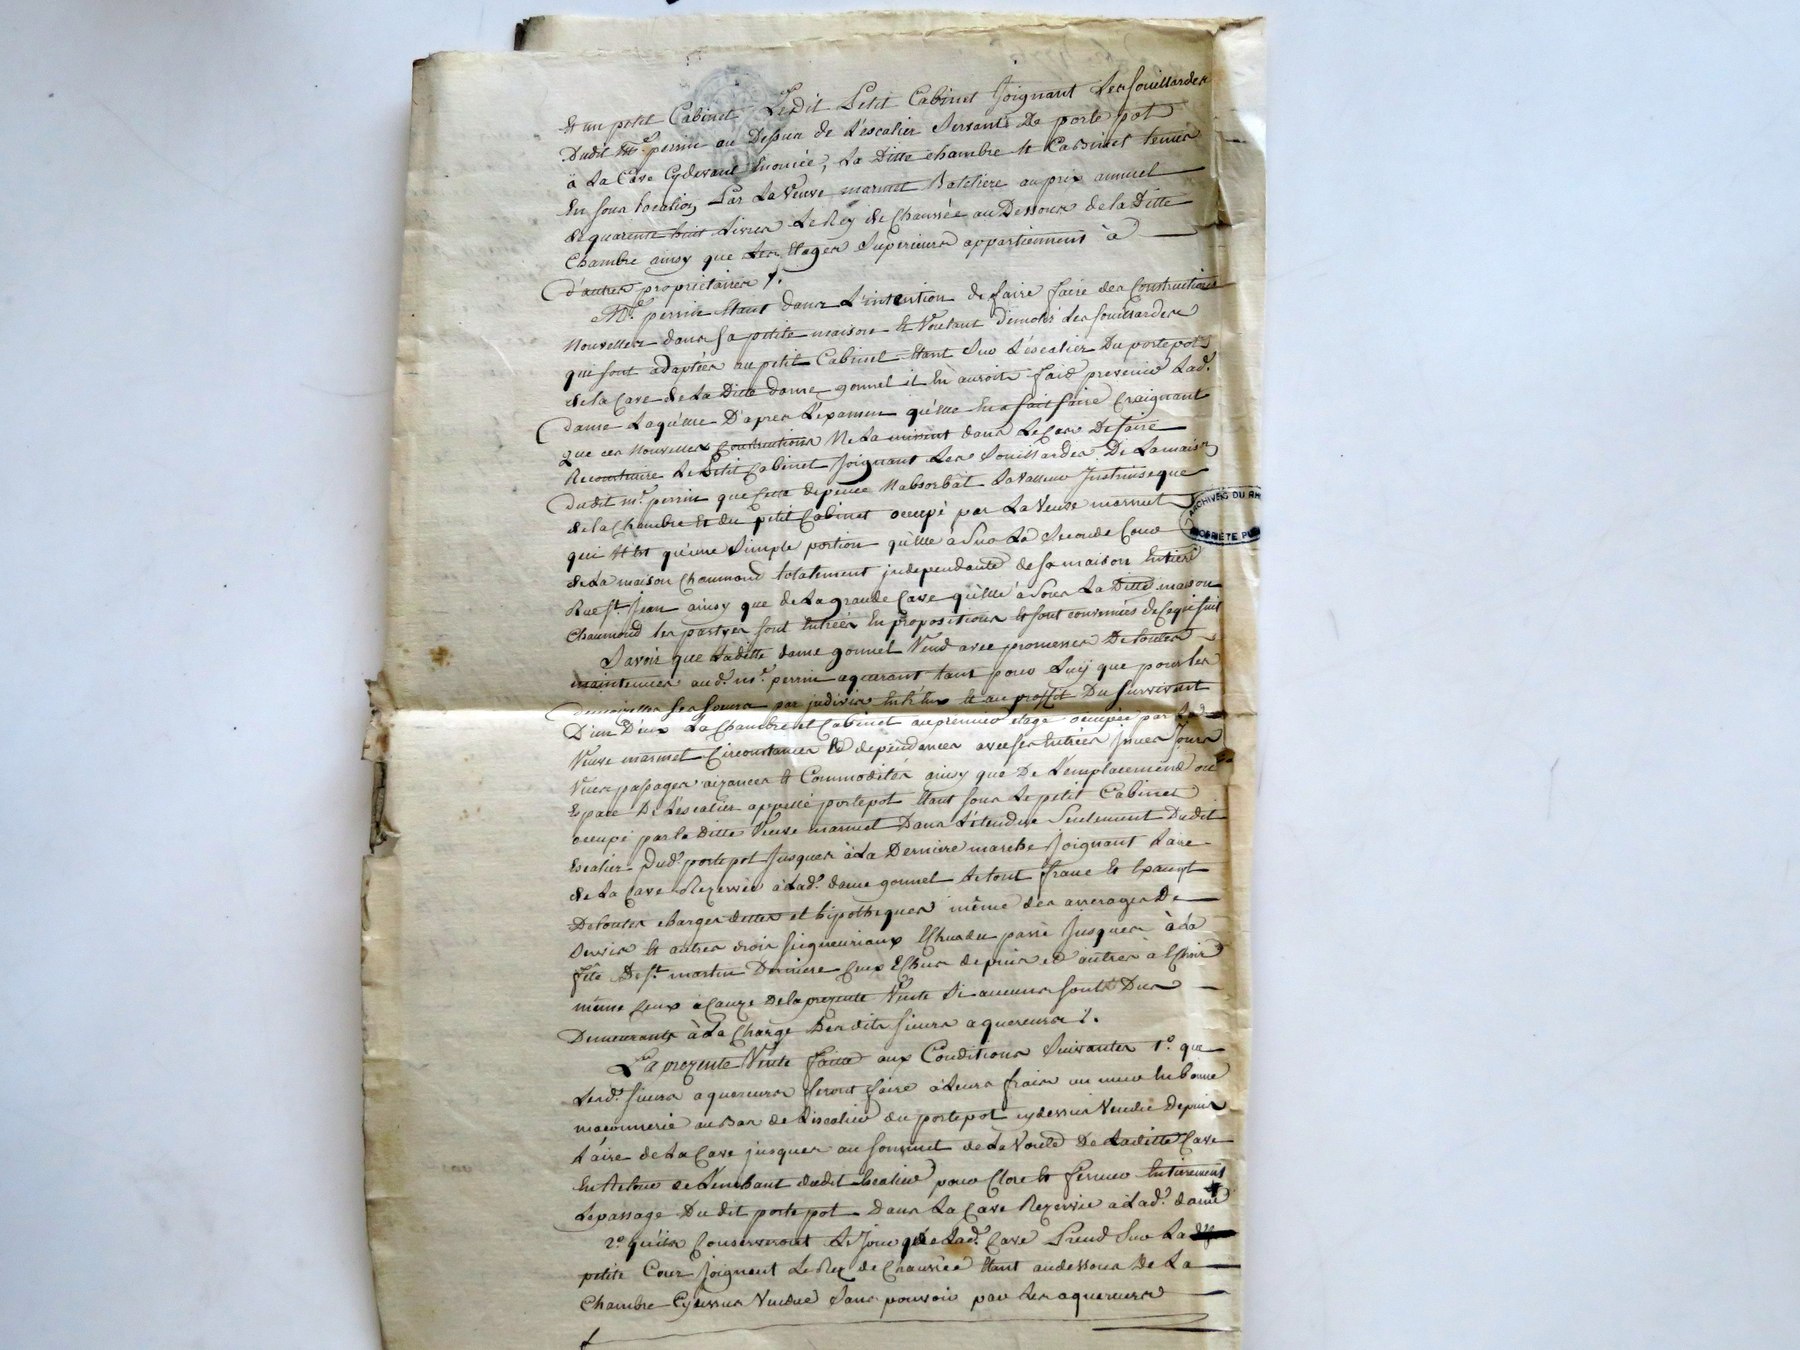 Et un petit Cabinet Ledit Petit Cabinet Joignant Les souillardes
Dudit Mr perrin au Dessus de L'escalier Servant De porte pot
à La Cave Cydevant Enoncée, La Ditte chambre Et Cabinet tenus
En sous location Par La Veuve marmet Batelière au prix annuel
de quarente huit Livres Le Rez de Chaussée au Dessous de la Ditte
Chambre ainsy que Les Etages Superieurs appartiennent à
d'autres proprietaires /.
Mr perrin Etant dans L'intention de faire faire des Constructions
Nouvelles dans sa petite maison Et Voulant Démolir Les souillardes
qui sont adaptées au petit Cabinet Etant Sur L'escalier Du portepot
de la Cave de La Ditte dame gonnel il En auroit fait prevenir Lad.
dame Laquelle D'apres L'examen qu'elle En a fait faire Craignant
que ces Nouvelles Constructions Ne La missent dans Le Cas De faire
Reconstruire Le Petit Cabinet Joignant Les Souillardes De La maison
Dudit mr perrin que Cette depence N'absorbat La Valleur Instrinseque
de la Chambre Et du petit Cabinet occupé par La Veuve marmet
qui N'Est qu'une Simple portion qu'elle à Sur La Seconde Cour
de La maison Chaumond totalement independante de sa maison Entiere
Rue St Jean ainsy que de La grande Cave qu'elle à Sous La Ditte maison
Chaumond les parties sont Entrées En propositions Et sont convenües de Ce qui suit
Savoir que Laditte dame gonnel Vend avec promesses De toutes
maintenües aud. mr perrin aquerant tant pour Luy que pour les
Demoiselles Ses soeurs par indivis Entr'Eux Et au proffit Du Survivant
D'un D'eux La Chambre et Cabinet au premier etage occupée par Lad.
Veuve marmet Circonstances Et dependances avec ses Entrées Issues Jours
Vües passages aizances Et Commodités ainsy que De L'emplacement ou
Espace De L'escalier appellé portepot Etant sous Le petit Cabinet
occupé par la Ditte Veuve marmet Dans L'étendüe Seulement Dudit
Escalier Dud. portepot Jusques à La Derniere marche Joignant L'aire
de La Cave Rezervée à Lad. dame gonnel Le tout franc Et Exempt
De toutes charges dettes et hipotheques même des arrerages De
Servis Et autres droits seigneuriaux Echus du passé Jusques à La
fête De St martin Derniere Ceux Echus depuis et autres à Echoir
même Ceux à Cauze De la prezente Vente Si aucuns sont Dus
Demeurants à La Charge Des dits sieurs aquereurs /.
La prezente Vente faitte aux Conditions Suivantes 1° que
Lesd. sieurs aquereurs feront faire à Leurs frais un mur En bonne
maçonnerie au Bas de L'escalier du portepot cydessus Vendu Depuis
L'aire de La Cave jusques au sommet de La Voute De Laditte Cave
dudit Escalier pour Clore Et fermer Entierement
Le passage Du dit portepot Dans La Cave Rezervée à Lad. dame
2° qu'ils Conserveront Le Jour que Lad. Cave Prend Sur La
petite Cour Joignant Le Rez de Chaussée Etant au dessous De La
Chambre Cydessus Vendüe Sans pouvoir par Les aquereurs
ARCHIVES DU RH
PROPRIÉTÉ PU